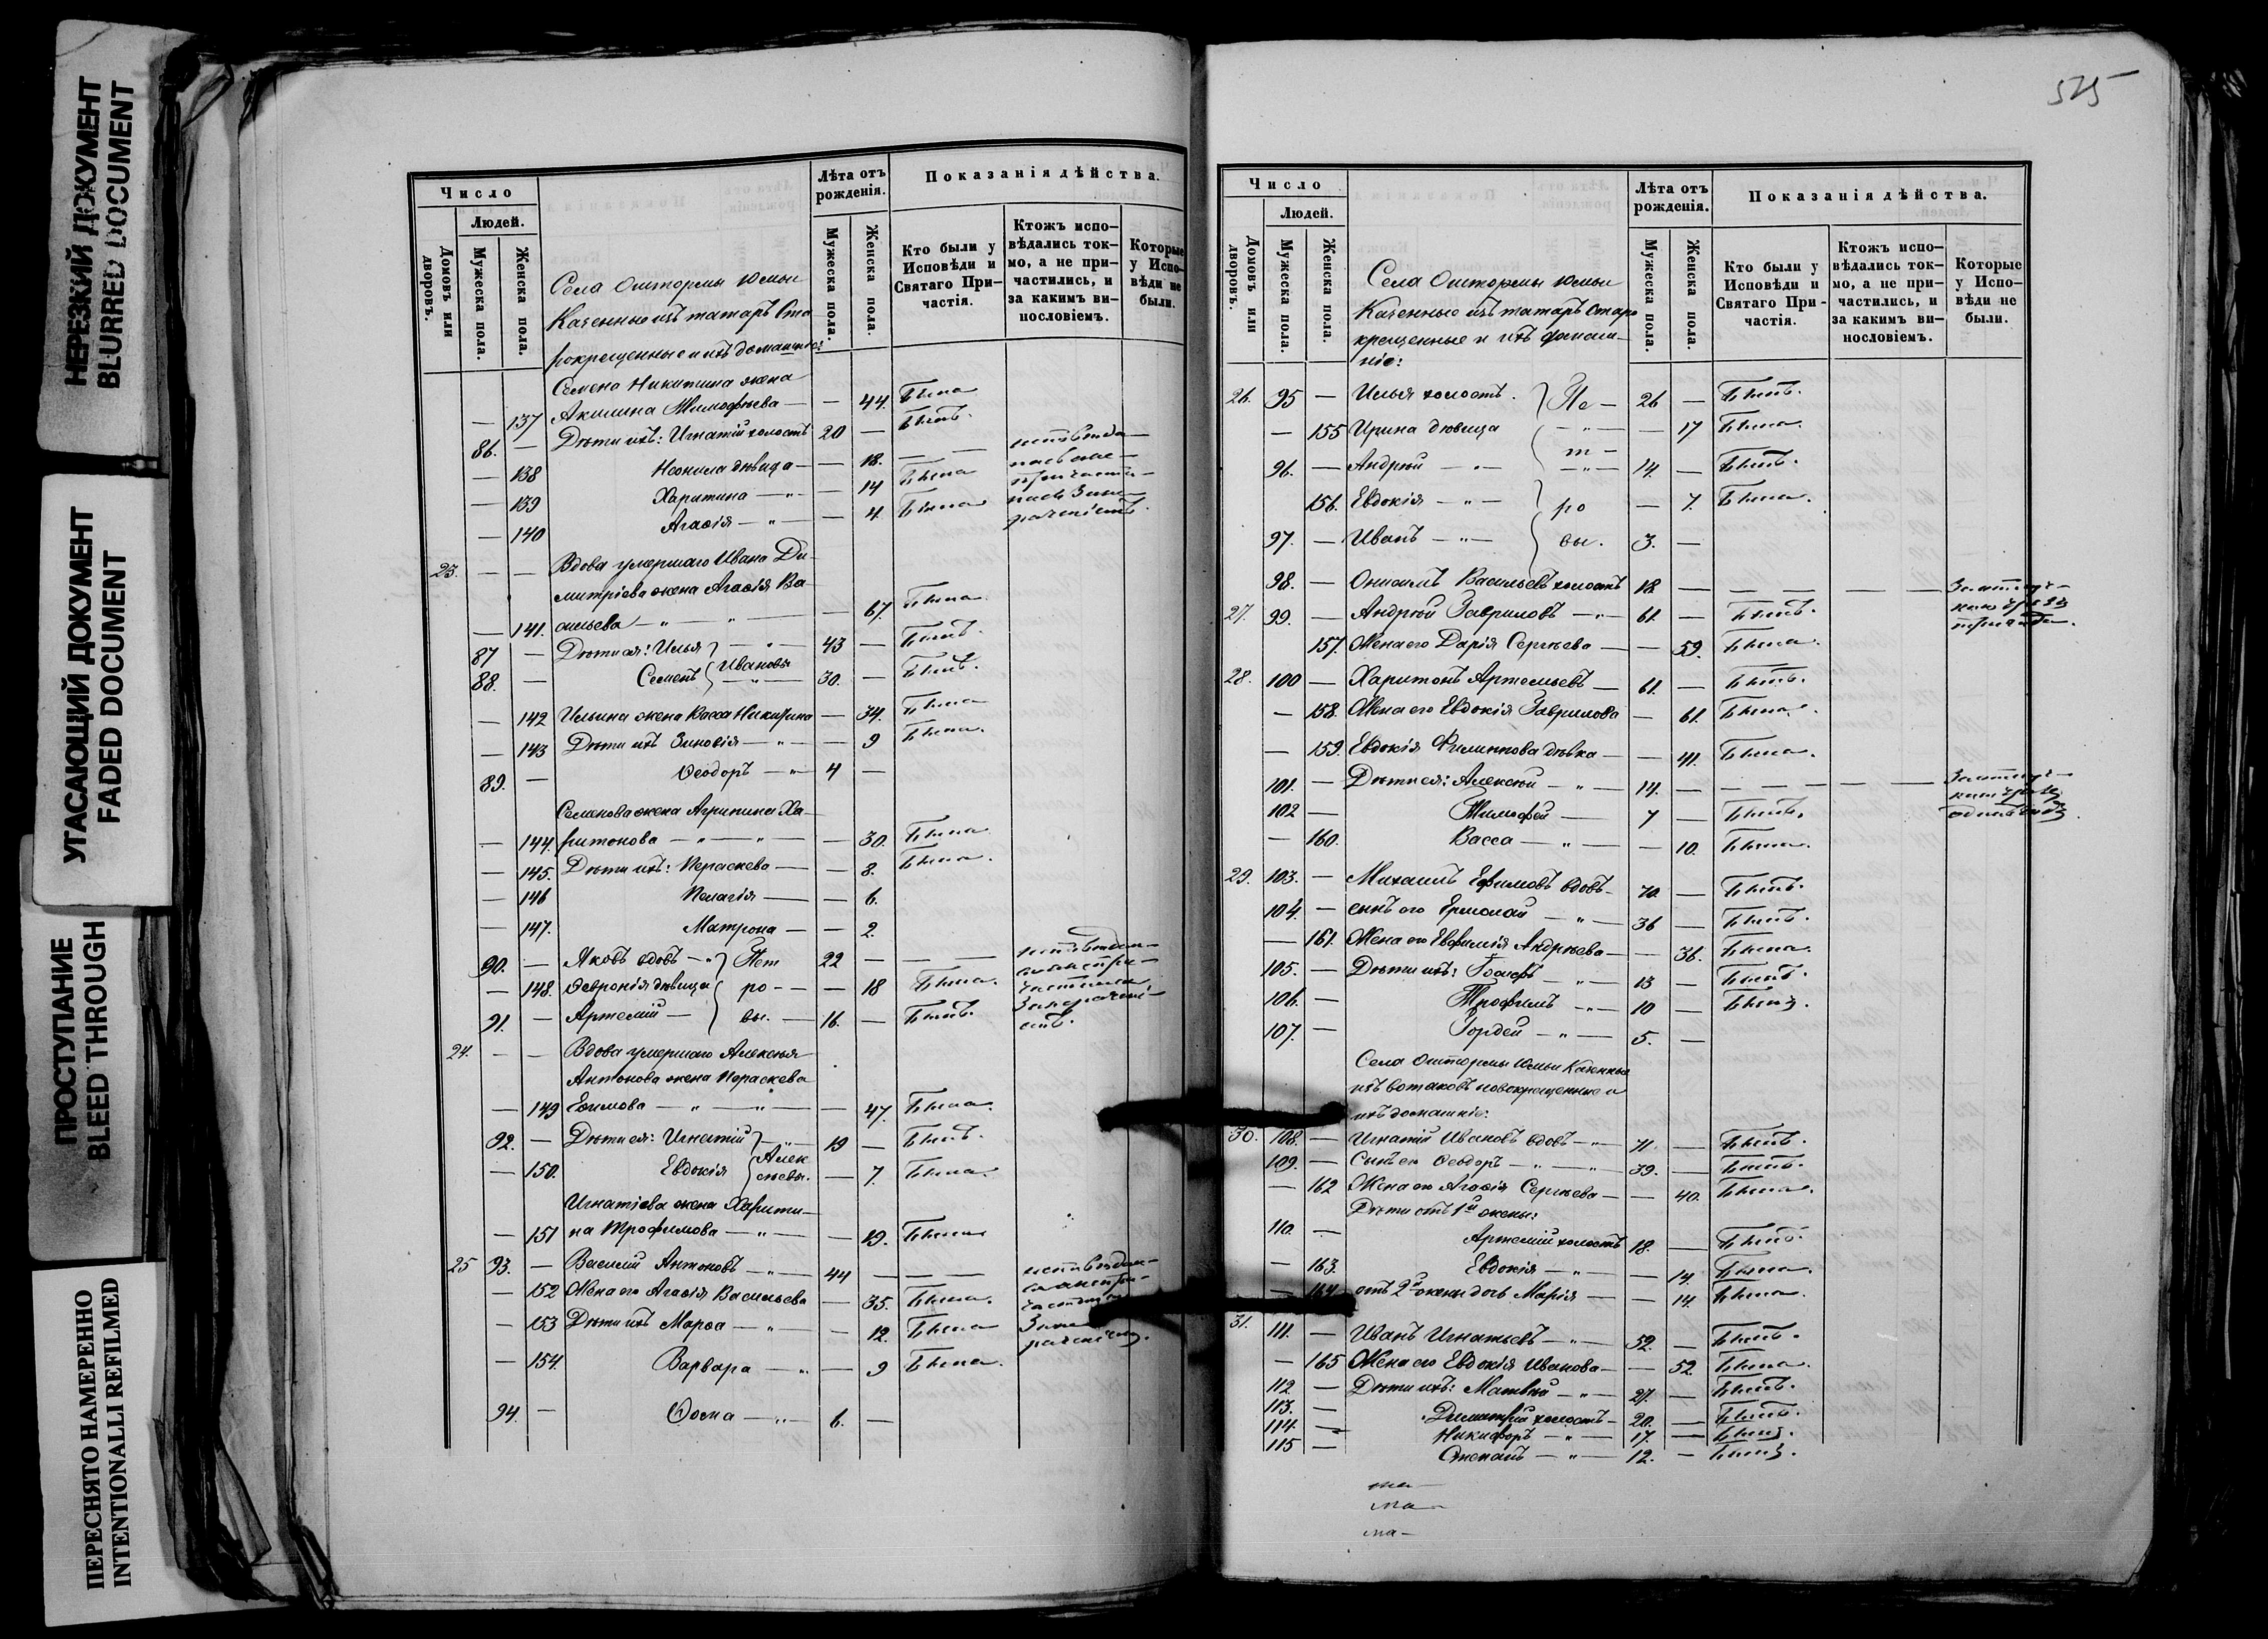 НЕРЕЗКИЙ ДОКУМЕНТ
BLURRED DOCUMENT
УГАСАЮЩИЙ ДОКУМЕНТ
FADED DOCUMENT
ПРОСТУПАНИЕ
BLEED THROUGH
ПЕРЕСНЯТО НАМЕРЕННО
INTENTIONALLI REFILMED
Число
Людей.
Домовъ или дворовъ.
Мужеска пола.
Женска пола.
Лѣта отъ рожденія.
Мужеска пола.
Женска пола.
Показанія дѣйства.
Кто были у Исповѣди и Святаго Причастія.
Ктожъ исповѣдались токмо, а не причастились, и за какимъ винословіемъ.
Которые у Исповѣди не были.
Села Оштормы Юмьи
Казенные изъ татаръ Ста
рокрещенные и ихъ домашніе:
Семена Никитина жена
— 137 Акилина Тимофеева — — 44. Была
86. — Дѣти ихъ: Игнатій холостъ 20 — Былъ.
— 138 Неонила дѣвица — — 18. — —
— 139 Харитина — „ — 14 Была
— 140 Агафія — „ — — 4. Была
23. — — Вдова умершаго Ивана Ди
митріева жена Агафія Ва
— 141. сильева — „ — „ — 67. Была
87 — Дѣти ея: Илья — „ — 43 — Былъ.
88. — Семенъ Ивановы 30. — Былъ.
— 142 Ильина жена Васса Никитина — 34. Была
— 143 Дѣти ихъ Зиновія — „ — — 9 Была.
89. — Ѳеодоръ — „ 4 —
Семенова жена Агрипина Ха
— 144. ритонова — „ — „ — — 30. Была
— 145. Дѣти ихъ: Параскева — — 8. Была.
— 146 Пелагія — — 6.
— 147. Матрона — — 2.
90. — Яковъ вдовъ — „ Пет 22 — — —
— 148. Ѳевронія дѣвица ро — — 18 Была.
91. — Артемій — вы. — 16. — Былъ.
24. — — Вдова умершаго Алексѣя
Антонова жена Параскева
— 149 Ефимова — „ — „ — — 47. Была.
92. — Дѣти ея: Игнатій — „ — 19 — Былъ.
— 150. Евдокія Алексѣевы. — 7. Была.
Игнатіева жена Харити
— 151 на Трофимова — „ — — 19. Была
25 93. — Василій Антоновъ — „ — 44 — — —
— 152 Жена его Агафія Васильева — 35. Была.
— 153 Дѣти ихъ Марѳа — „ — — 12. Была
— 154. Варвара — „ — 9 Была.
94. — Ѳома — „ — 6. —
525
Число
Людей.
Домовъ или дворовъ.
Мужеска пола.
Женска пола.
Лѣта отъ рожденія.
Мужеска пола.
Женска пола.
Показанія дѣйства.
Кто были у Исповѣди и Святаго Причастія.
Ктожъ исповѣдались токмо, а не причастились, и за какимъ винословіемъ.
Которые у Исповѣди не были.
Села Оштормы Юмьи
Казенные изъ татаръ Старо
крещенные и ихъ домаш
ніе:
26. 95 — Илья холостъ. Пе — 26 — Былъ.
— 155 Ирина дѣвица — „ — — 17 Была.
96. — Андрей — „ — т — 14. — Былъ.
156. Евдокія — „ — ро — 7. Была.
97. — Иванъ — „ — вы. 3. —
98. — Онисимъ Васильевъ холостъ 18 — — — — —
27. 99. — Андрей Гавриловъ — „ — 61. — Былъ.
157. Жена его Дарія Сергѣева — — 59. Была.
28. 100 — Харитонъ Артемьевъ — 61. — Былъ.
— 158. Жена его Евдокія Гаврилова — 61. Была.
— 159. Евдокія Филиппова дѣвка — — 41. Была.
101. — Дѣти ея: Алексѣй — „ — 14. — — — — —
102 — Тимофей — 7 — Былъ.
— 160. Васса — „ — — 10. Была.
29. 103. — Михаилъ Ефимовъ вдовъ — 70. — Былъ.
104. — сынъ его Ермолай — „ — 36 — Былъ.
— 161. Жена его Евфимія Андреева — — 36. Была.
105. — Дѣти ихъ: Іосифъ — „ — 13 — Былъ.
106. — Трофимъ — „ — 10 — Былъ.
107. — Гордей — „ — 5. —
Села Оштормы Юмьи Казенные
изъ вотяковъ новокрещенные и
ихъ домашніе:
30. 108. — Игнатій Ивановъ вдовъ — „ — 71 — Былъ.
109. — Сынъ его Ѳеодоръ — „ — „ 39. — Былъ.
— 162 Жена его Агафія Сергѣева — — 40. Была.
Дѣти отъ 1й жены:
110. — Артемій холостъ 18. — Былъ.
— 163. Евдокія — „ — — 14. Была.
— 164 отъ 2й жены дочь Марія — — 14. Была.
31. 111. — Иванъ Игнатьевъ — „ — 52. — Былъ.
— 165 Жена его Евдокія Иванова — — 52. Была.
112 — Дѣти ихъ: Матвей — „ — 27. — Былъ.
113. — Димитрій холостъ — 20. — Былъ.
114. — Никифоръ — „ — 17. — Былъ.
115 — Степанъ — „ — 12. — Былъ.